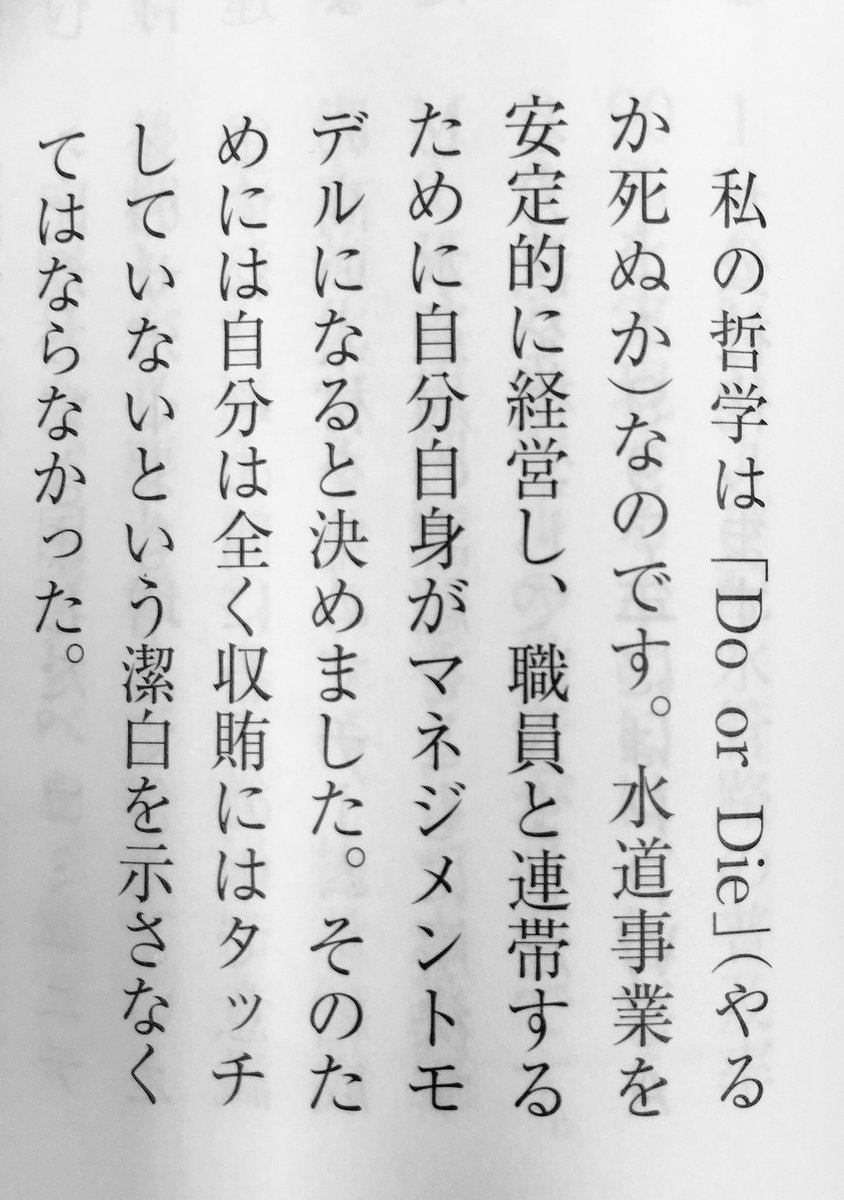 私の哲学は「Do or Die」(やる
か死ぬか)なのです。水道事業を
安定的に経営し、職員と連帯する
ために自分自身がマネジメントモ
デルになると決めました。そのた
めには自分は全く収賄にはタッチ
していないという潔白を示さなく
てはならなかった。